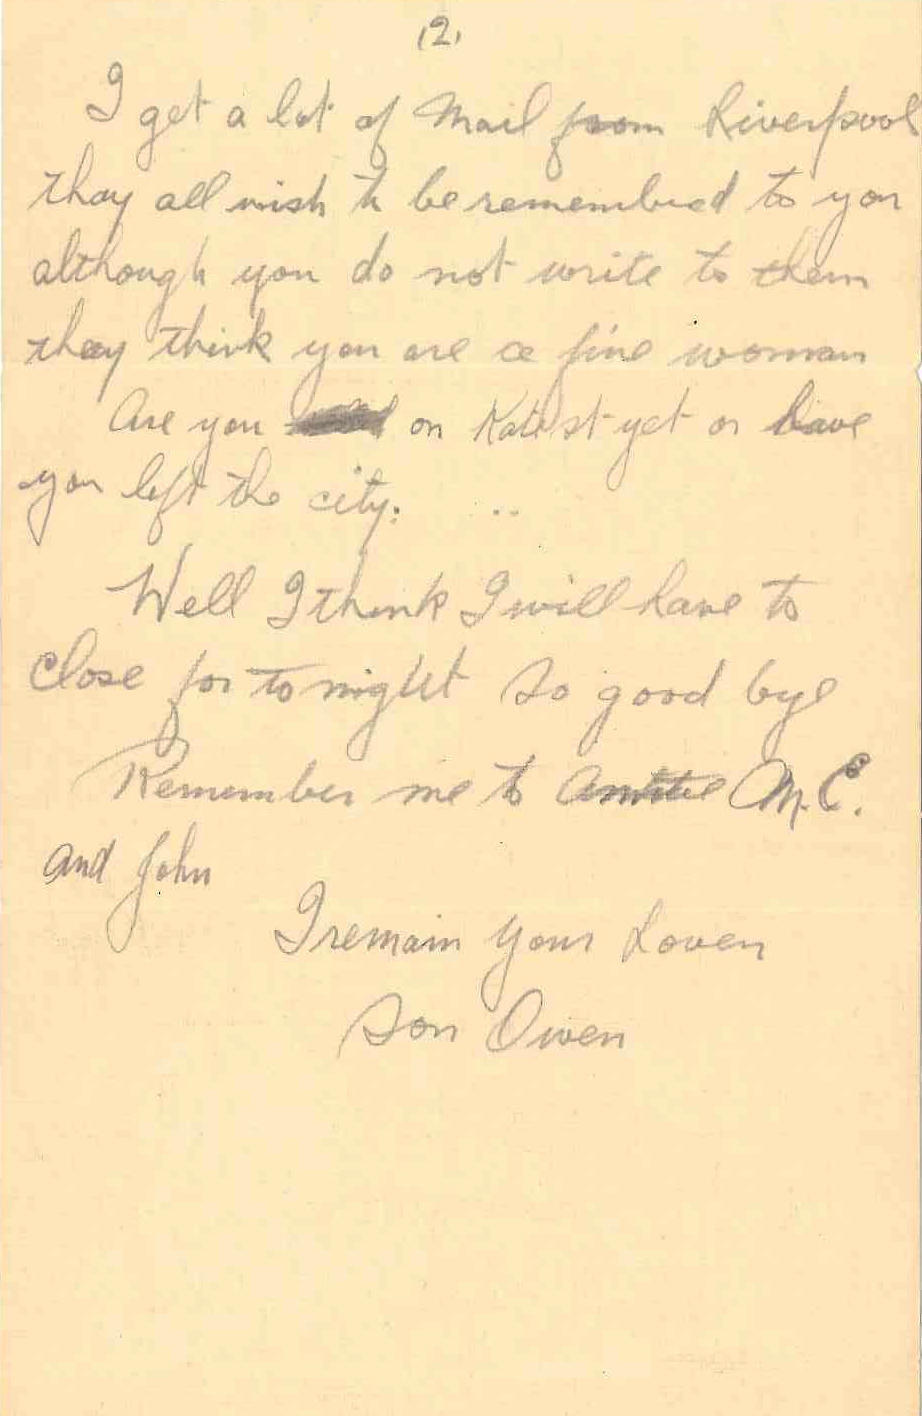 (2)
I get a lot of Mail from Liverpool
thay all wish to be remembred to you
although you do not write to them
they think you are a fine woman
Are you on Kate st yet or have
you left the city. ..
Well I think I will have to
Close for to night So good bye
Remember me to Auntie M.C.
and John
I remain your Loven
Son Owen